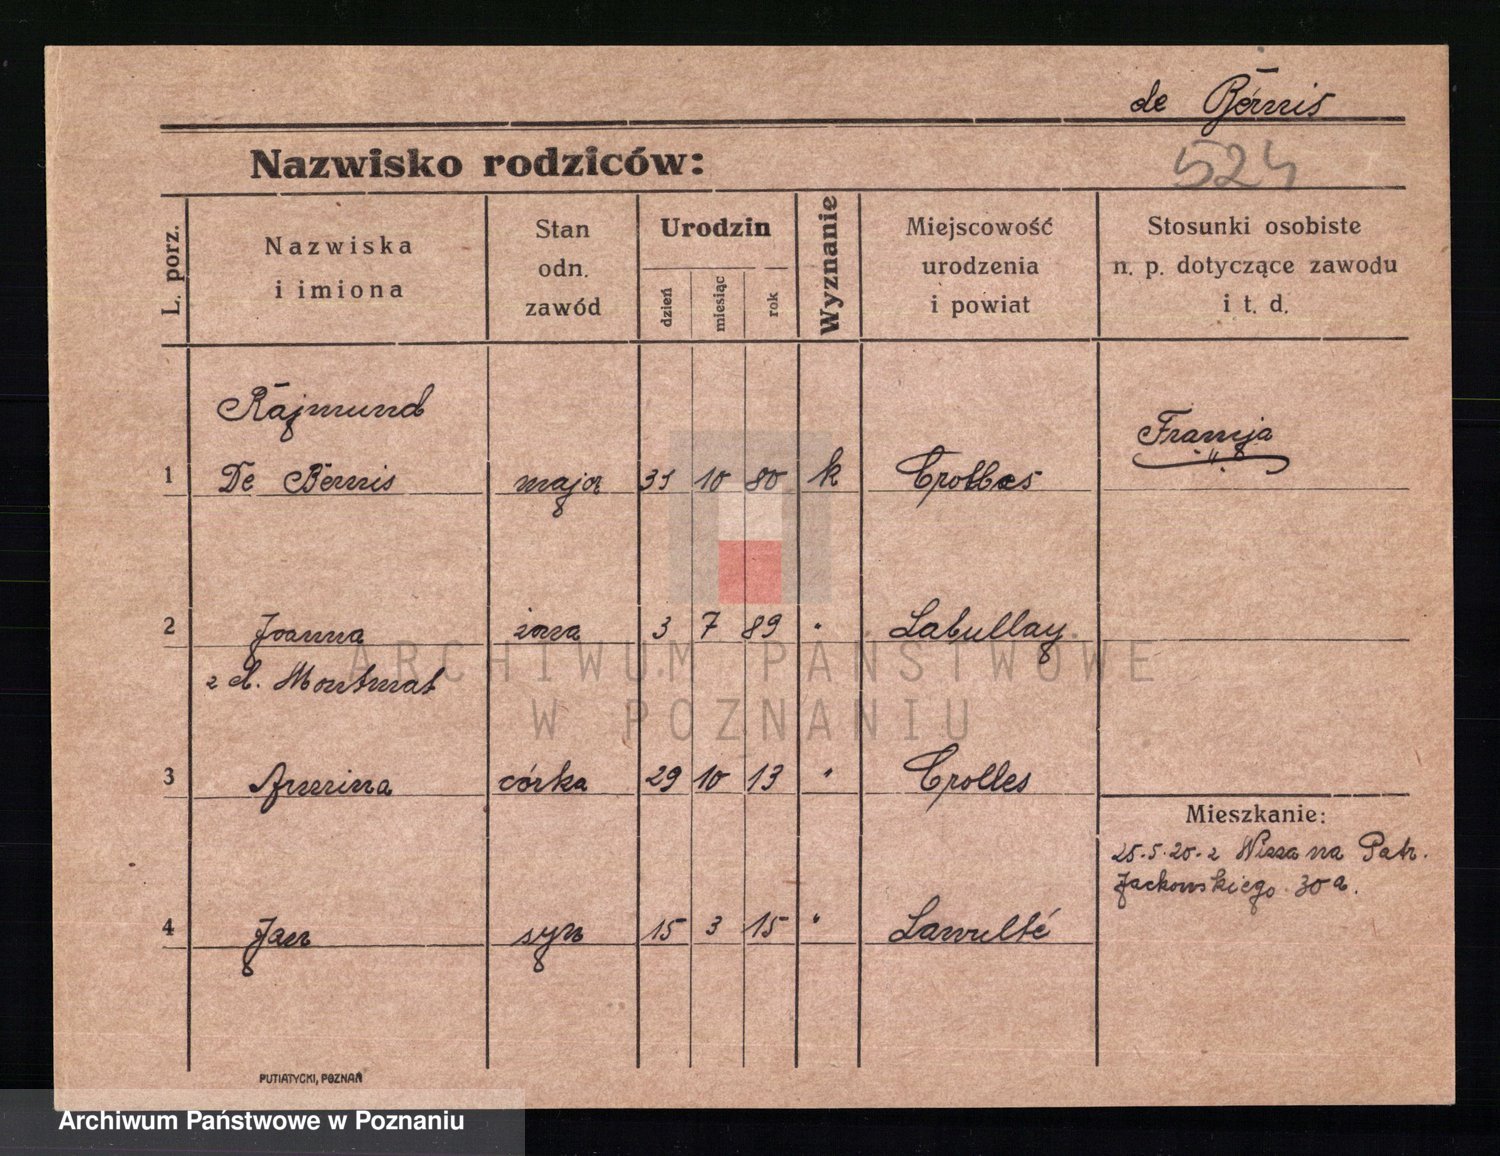 de Bernis
524
Nazwisko rodziców:
L. porz.
Nazwiska
i imiona
Stan
odn.
zawód
Urodzin
dzień
miesiąc
rok
Wyznanie
Miejscowość
urodzenia
i powiat
Stosunki osobiste
n. p. dotyczące zawodu
i t. d.
Rajmund
1 De Bernis major 31 10 80 k Crolles
Francja
2 Joanna żona 3 7 89 " Labullay
z d. Montmat
3 Annina córka 29 10 13 " Crolles
Mieszkanie:
25.5.20. z Nizza na Patr.
Jackowskiego 30 a.
4 Jan syn 15 3 15 "
PUTIATYCKI, POZNAŃ
ARCHIWUM PAŃSTWOWE
W POZNANIU
Archiwum Państwowe w Poznaniu